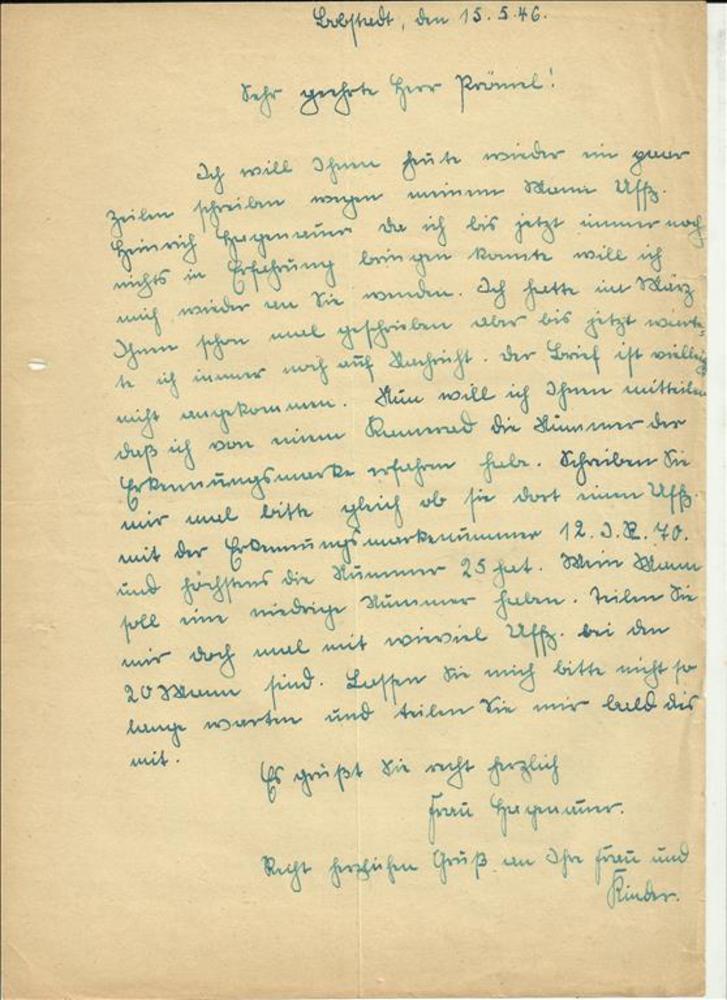 Lobstedt, den 15.5.46.
Sehr geehrte Herr Prömel!
Ich will Ihnen heute wieder ein paar
Zeilen schreiben wegen meinem Mann Uffz.
Heinrich Hagenauer da ich bis jetzt immer noch
nichts in Erfahrung bringen konnte will ich
mich wieder an Sie wenden. Ich hatte im März
Ihnen schon mal geschrieben aber bis jetzt warte-
te ich immer noch auf Nachricht. Der Brief ist vielleich
nicht angekommen. Nun will ich Ihnen mitteilen
daß ich von einem Kamerad die Nummer der
Erkennungsmarke erfahren habe. Schreiben Sie
mir mal bitte gleich ob sie dort einen Uffz.
mit der Erkennungsmarkenummer 12.I.R.70.
und höchstens die Nummer 25 hat. Mein Mann
soll eine niedrige Nummer haben. Teilen Sie
mir doch mal mit wieviel Uffz. bei den
20 Mann sind. Lassen Sie mich bitte nicht so
lange warten und teilen Sie mir bald dis
mit.
Es grüßt Sie recht herzlich
Frau Hagenauer.
Recht herzlichen Gruß an Ihre Frau und
Kinder.